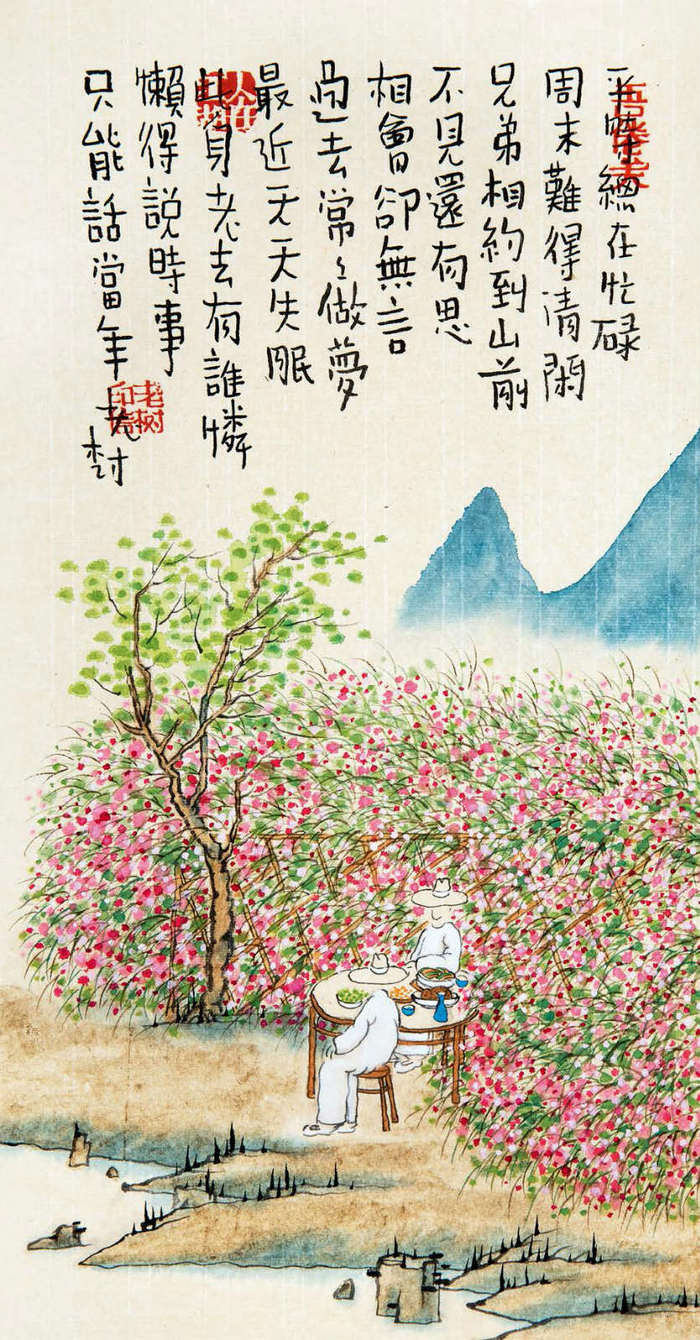 平時總在忙碌
周末難得清閑
兄弟相約到山前
不見還有思
相會卻無言
過去常々做夢
最近天天失眠
此身老去有誰憐
懶得說時事
只能話當年 老树
老树
印信